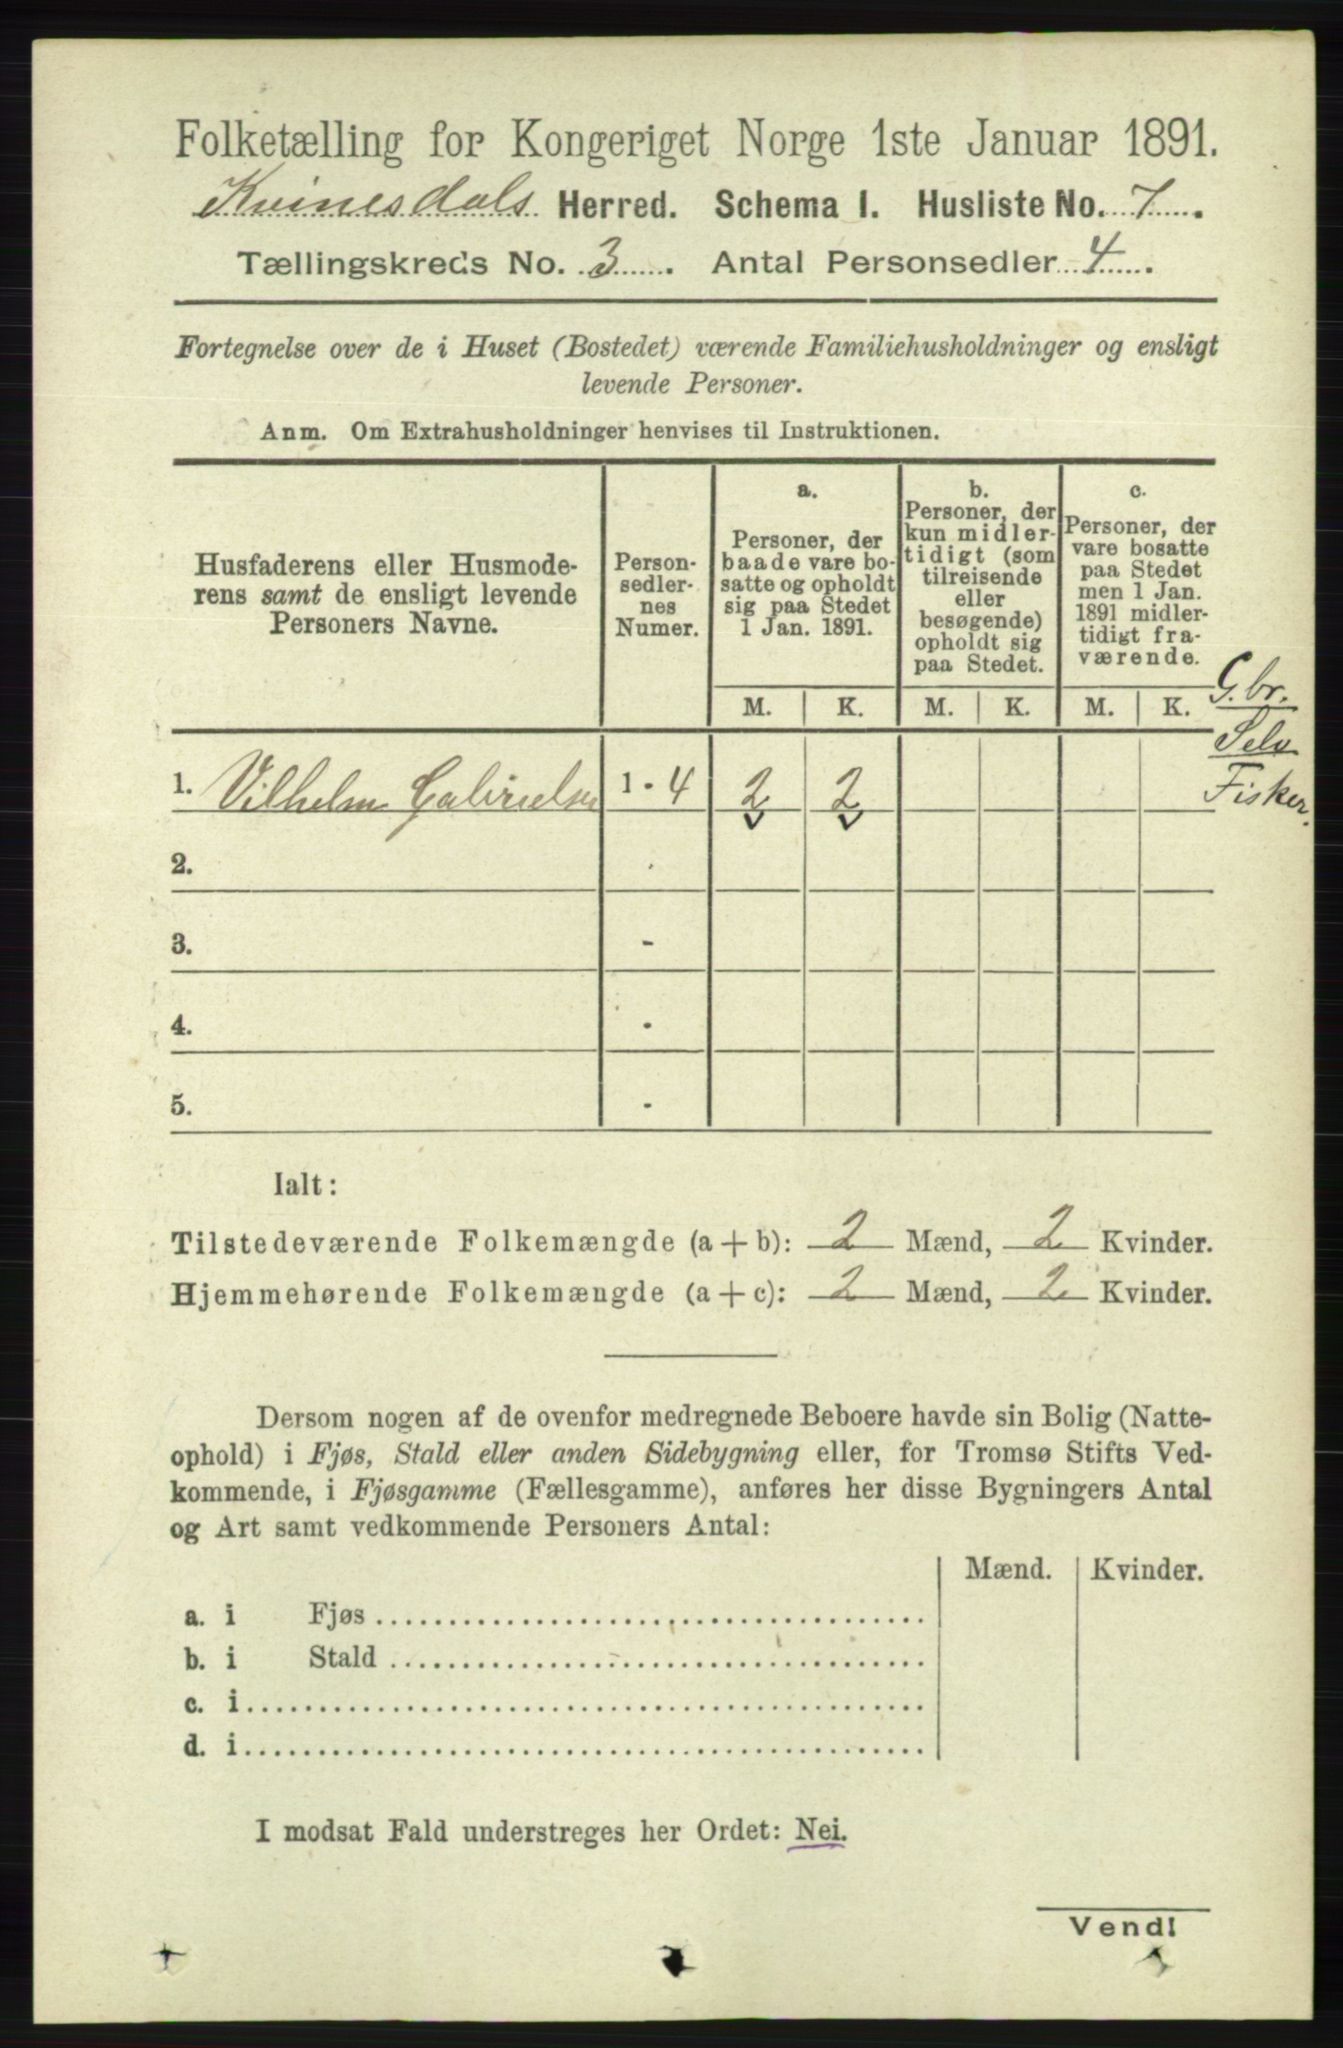 Folketælling for Kongeriget Norge 1ste Januar 1891.
Kvinesdals Herred. Schema I. Husliste No. 7.
Tællingskreds No. 3. Antal Personsedler 4.
Fortegnelse over de i Huset (Bostedet) værende Familiehusholdninger og ensligt
levende Personer.
Anm. Om Extrahusholdninger henvises til Instruktionen.
Husfaderens eller Husmode-
rens samt de ensligt levende
Personers Navne.
Person-
sedler-
nes
Numer.
a.
Personer, der
baade vare bo-
satte og opholdt
sig paa Stedet
1 Jan. 1891.
b.
Personer, der
kun midler-
tidigt (som
tilreisende
eller
besøgende)
opholdt sig
paa Stedet.
c.
Personer, der
vare bosatte
paa Stedet
men 1 Jan.
1891 midler-
tidigt fra-
værende.
M. K. M. K. M. K.
G.br.
Selv
Fisker.
1. Vilhelm Gabrielsen 1 - 4 2 2
2. -
3. -
4. -
5. -
Ialt:
Tilstedeværende Folkemængde (a + b): 2 Mænd, 2 Kvinder.
Hjemmehørende Folkemængde (a + c): 2 Mænd, 2 Kvinder.
Dersom nogen af de ovenfor medregnede Beboere havde sin Bolig (Natte-
ophold) i Fjøs, Stald eller anden Sidebygning eller, for Tromsø Stifts Ved-
kommende, i Fjøsgamme (Fællesgamme), anføres her disse Bygningers Antal
og Art samt vedkommende Personers Antal:
Mænd. Kvinder.
a. i Fjøs
b. i Stald
c. i
d. i
I modsat Fald understreges her Ordet: Nei.
Vend!